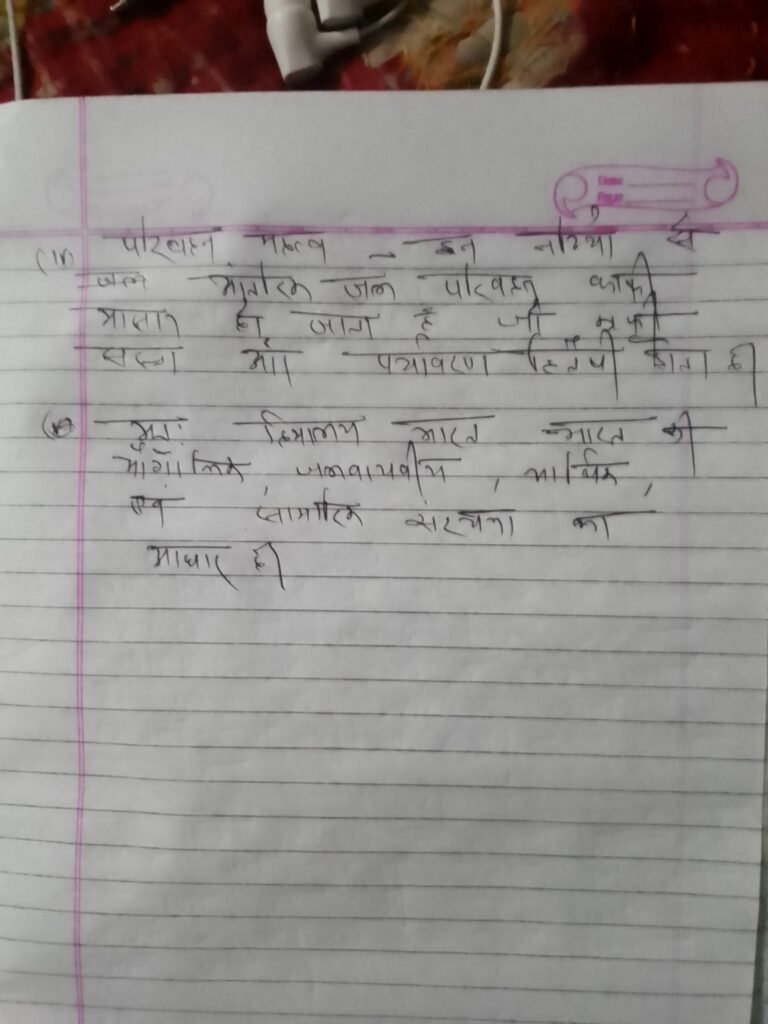 (iv) परिवहन महत्व - इन नदियो से
जल आंतरिक जल परिवहन काफी
आसान हो जाता है जो काफी
सस्ता और पर्यावरण हितैषी होता है।
अतः हिमालय भारत भारत की
भौगोलिक, जलवायवीय, आर्थिक,
एवं सामरिक संरचना का
आधार है।